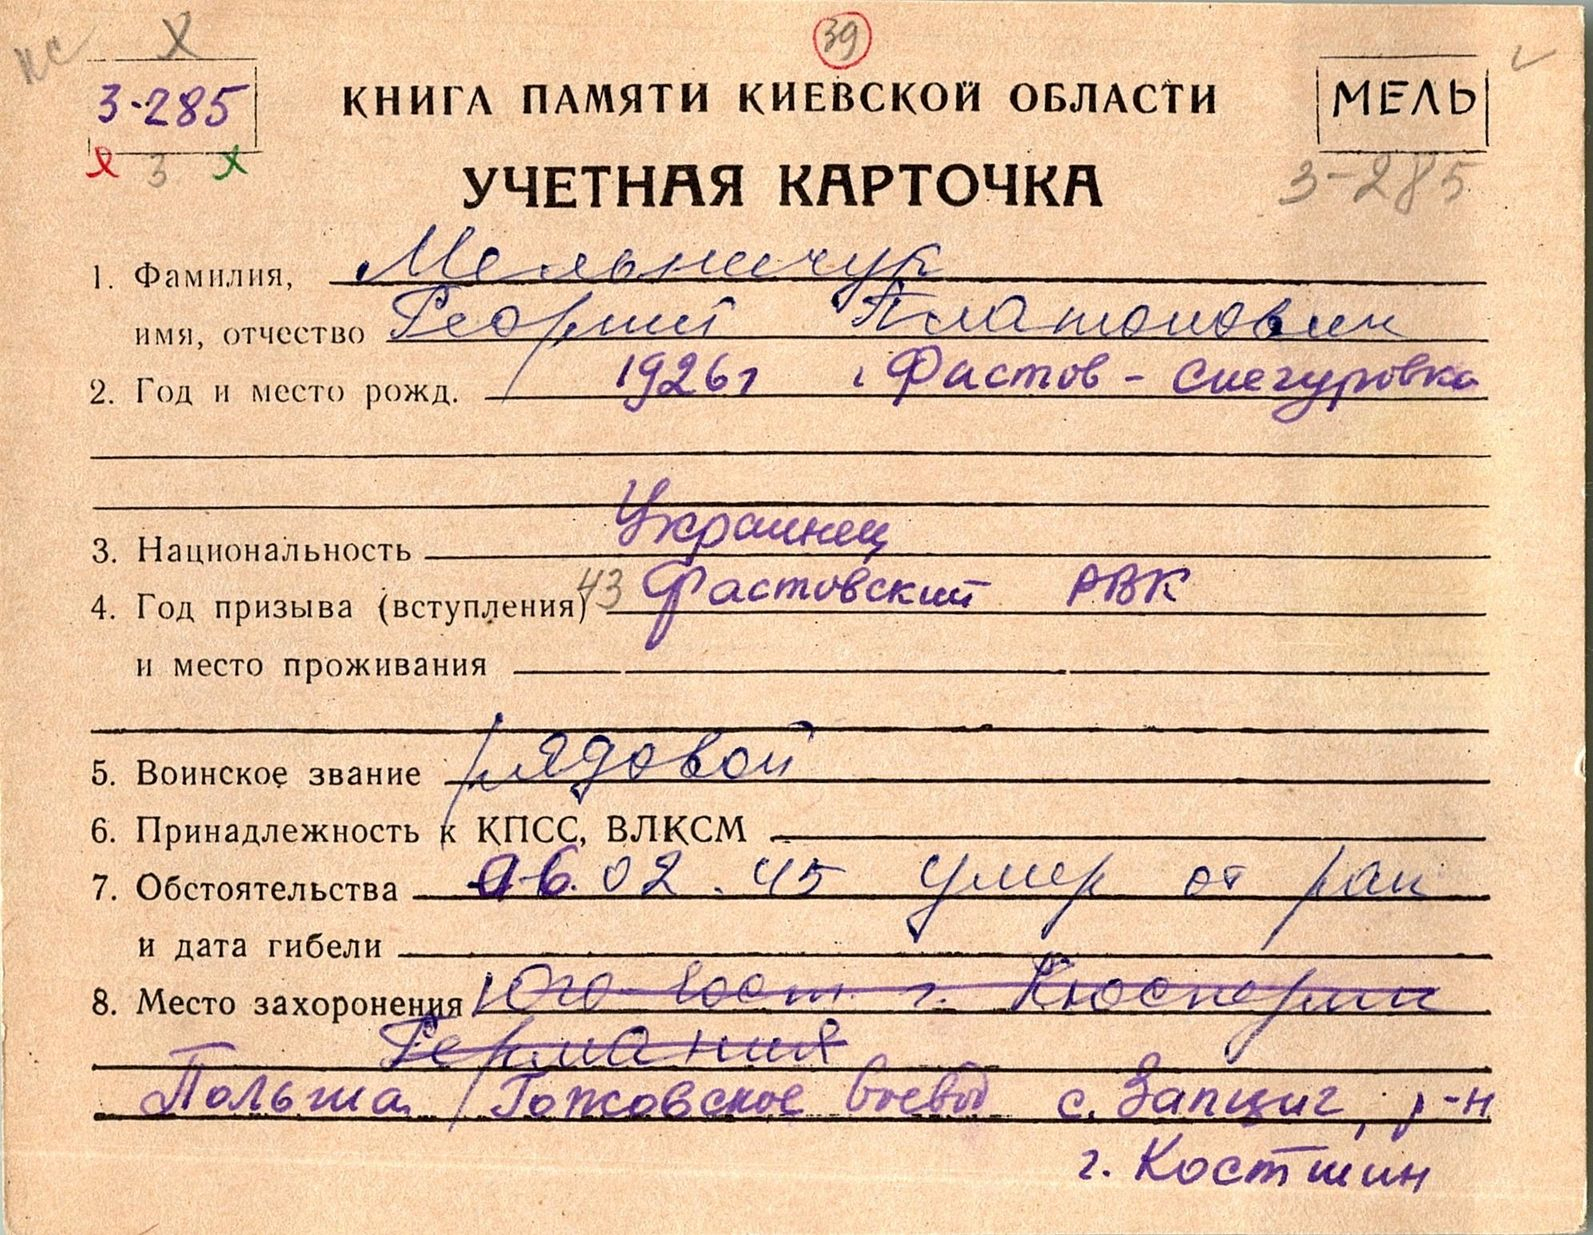 ПС X
39
3-285
КНИГА ПАМЯТИ КИЕВСКОЙ ОБЛАСТИ
МЕЛЬ
х 3 х
УЧЕТНАЯ КАРТОЧКА
3-285
1. Фамилия, Мельничук
имя, отчество Георгий Платонович
2. Год и место рожд. 1926г г Фастов - Снегуровка
3. Национальность Украинец
4. Год призыва (вступления) 43 Фастовский РВК
и место проживания
5. Воинское звание рядовой
6. Принадлежность к КПСС, ВЛКСМ
7. Обстоятельства 06.02.45 умер от ран
и дата гибели
8. Место захоронения Юго-Вост. г.
Германия
Польша Гожовское воевод с. Запциг, р-н
г. Костшин